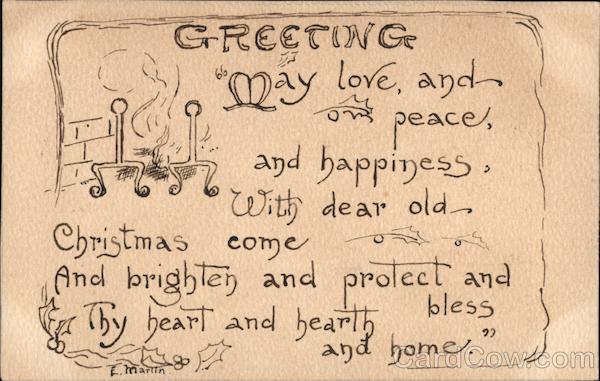 GREETING
"May love, and
peace,
and happiness,
With dear old
Christmas come
And brighten and protect and
bless
Thy heart and hearth
and home."
E. Martin.
CardCow.com